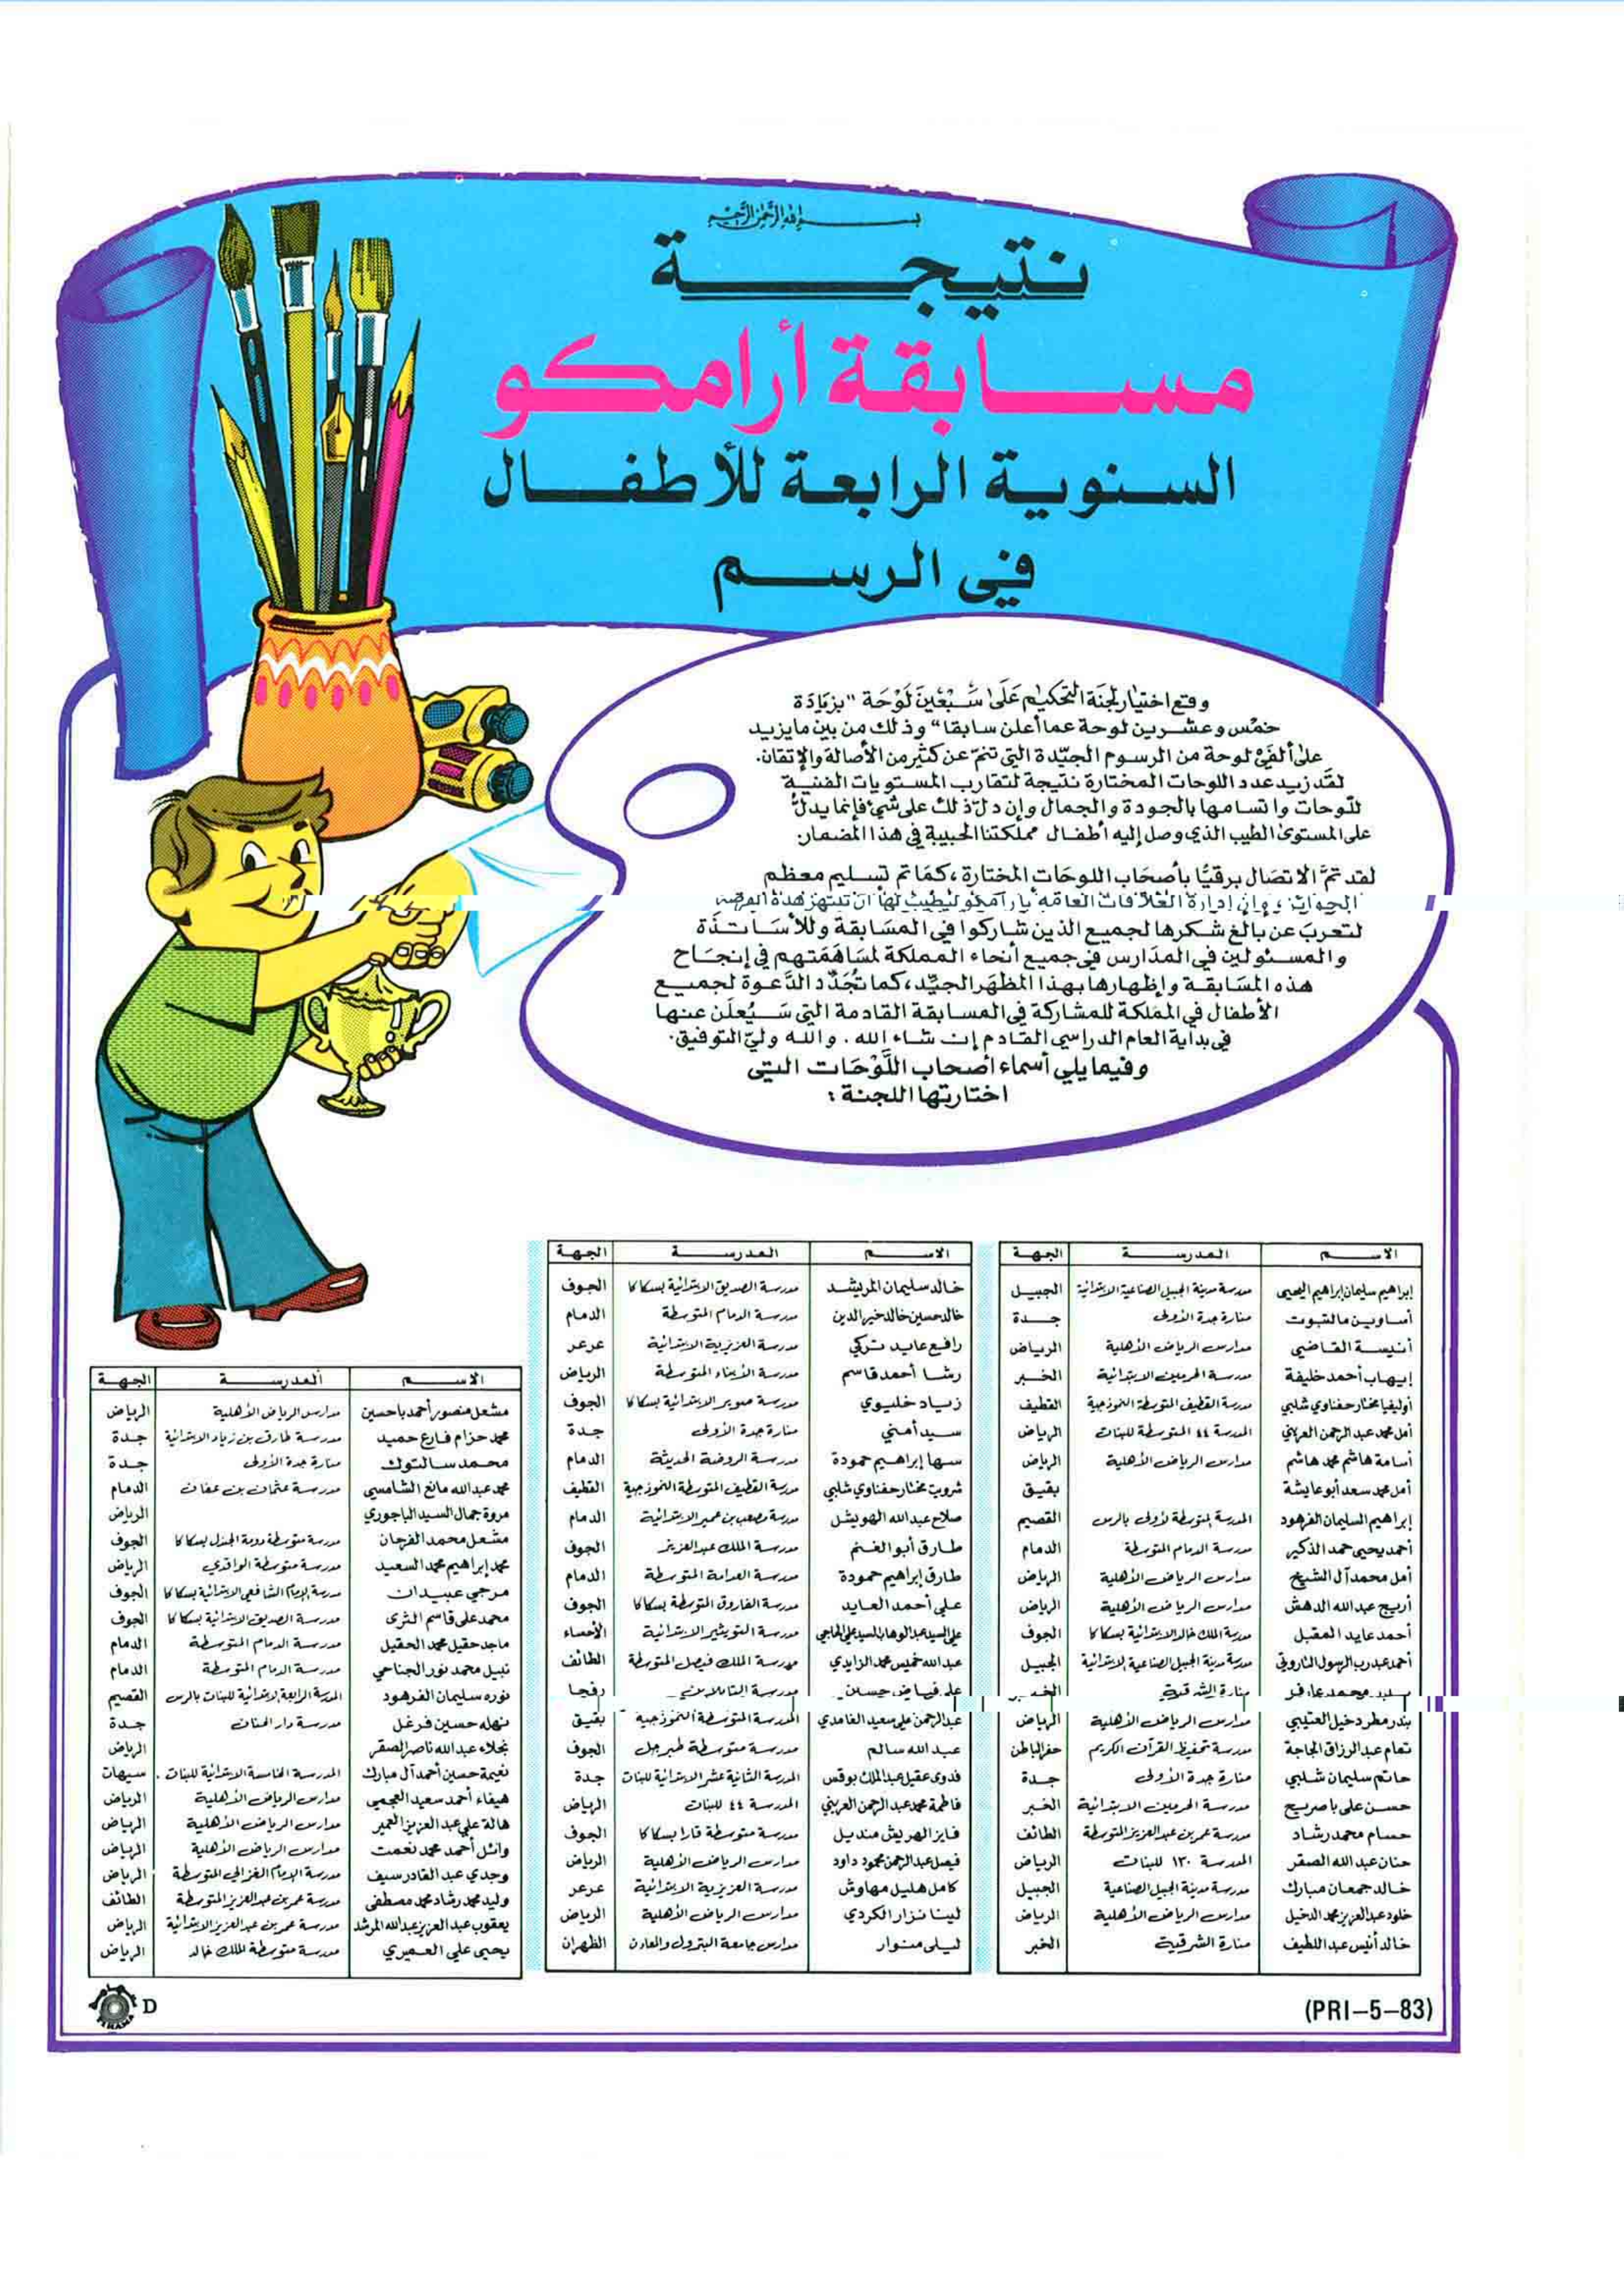 بسم الله الرحمن الرحيم
نتيجة
مسابقة أرامكو
السنوية الرابعة للأطفال
في الرسم
وقع اختيار لجنة التحكيم على سبعين لوحة "بزيادة
خمس وعشرين لوحة عما أعلن سابقا" وذلك من بين مايزيد
على ألفي لوحة من الرسوم الجيّدة التي تنمّ عن كثير من الأصالة والإتقان.
لقد زيد عدد اللوحات المختارة نتيجة لتقارب المستويات الفنية
للّوحات واتسامها بالجودة والجمال وإن دلّ ذلك على شيء فإنما يدلّ
على المستوى الطيب الذي وصل إليه أطفال مملكتنا الحبيبة في هذا المضمار.
لقد تمّ الاتصال برقيًا بأصحاب اللوحات المختارة، كما تم تسليم معظم
الجوائز، وإن إدارة العلاقات العامة بأرامكو ليطيب لها أن تنتهز هذه الفرصة
لتعرب عن بالغ شكرها لجميع الذين شاركوا في المسابقة وللأساتذة
والمسئولين في المدارس في جميع أنحاء المملكة لمساهمتهم في إنجاح
هذه المسابقة وإظهارها بهذا المظهر الجيّد، كما تجدّد الدّعوة لجميع
الأطفال في المملكة للمشاركة في المسابقة القادمة التي سيُعلن عنها
في بداية العام الدراسي القادم إن شاء الله. والله وليّ التوفيق.
وفيما يلي أسماء أصحاب اللّوحات التي
اختارتها اللجنة :
الاسم المدرسة الجهة
إبراهيم سليمان إبراهيم اليحيى مدرسة مدينة الجبيل الصناعية الابتدائية الجبيل
أساوين مالتبوت منارة جدة الأولى جدة
أنيسة القاضي مدارس الرياض الأهلية الرياض
إيهاب أحمد خليفة مدرسة الحرمين الابتدائية الخبر
أوليفيا مختار حفناوي شلبي مدرسة القطيف المتوسطة النموذجية القطيف
أمل محمد عبد الرحمن العريني المدرسة ٤٤ المتوسطة للبنات الرياض
أسامة هاشم محمد هاشم مدارس الرياض الأهلية الرياض
أمل محمد سعد أبو عايشة بقيق
إبراهيم السليمان الفرهود المدرسة المتوسطة الأولى بالرس القصيم
أحمد يحيى حمد الذكير مدرسة الدمام المتوسطة الدمام
أمل محمد آل الشيخ مدارس الرياض الأهلية الرياض
أريج عبدالله الدهش مدارس الرياض الأهلية الرياض
أحمد عايد المقبل مدرسة الملك خالد الابتدائية بسكاكا الجوف
أحمد عبد رب الرسول الناروني مدرسة مدينة الجبيل الصناعية الابتدائية الجبيل
محمد منارة الشرقية الخبر
بندر مطر دخيل العتيبي مدارس الرياض الأهلية الرياض
تمام عبد الرزاق الجاجة مدرسة تحفيظ القرآن الكريم حفر الباطن
حاتم سليمان شلبي منارة جدة الأولى جدة
حسن علي باصريح مدرسة الحرمين الابتدائية الخبر
حسام محمد رشاد مدرسة عمر بن عبد العزيز المتوسطة الطائف
حنان عبد الله الصقر المدرسة ١٣٠ للبنات الرياض
خالد جمعان مبارك مدرسة مدينة الجبيل الصناعية الجبيل
خلود عبدالعزيز محمد الدخيل مدارس الرياض الأهلية الرياض
خالد أنيس عبد اللطيف منارة الشرقية الخبر
الاسم المدرسة الجهة
خالد سليمان المريشد مدرسة الصديق الابتدائية بسكاكا الجوف
خالد حسين خالد خير الدين مدرسة الدمام المتوسطة الدمام
رافع عايد تركي مدرسة العزيزية الابتدائية عرعر
رشا أحمد قاسم مدرسة الأبناء المتوسطة الرياض
زياد خليوي مدرسة صوير الابتدائية بسكاكا الجوف
سيد أمني منارة جدة الأولى جدة
سها إبراهيم حمودة مدرسة الروضة الحديثة الدمام
شروين مختار حفناوي شلبي مدرسة القطيف المتوسطة النموذجية القطيف
صلاح عبدالله الهويشل مدرسة مصعب بن عمير الابتدائية الدمام
طارق أبو الغنم مدرسة الملك عبدالعزيز الجوف
طارق إبراهيم حمودة مدرسة العدامة المتوسطة الدمام
علي أحمد العايد مدرسة الفاروق المتوسطة بسكاكا الجوف
علي السيد عبد الوهاب السيد علي الحاجي مدرسة التويثير الابتدائية الأحساء
عبد الله خميس محمد الزايدي مدرسة الملك فيصل المتوسطة الطائف
فياض حسين مدرسة رفحا
عبدالرحمن علي سعيد الغامدي المدرسة المتوسطة النموذجية بقيق
عبد الله سالم مدرسة متوسطة طبرجل الجوف
فدوى عقيل عبدالملك بوقس المدرسة الثانية عشر الابتدائية للبنات جدة
فاطمة محمد عبد الرحمن العريني المدرسة ٤٤ للبنات الرياض
فايز الهريش منديل مدرسة متوسطة قارا بسكاكا الجوف
فيصل عبد الرحمن محمود داود مدارس الرياض الأهلية الرياض
كامل هليل مهاوش مدرسة العزيزية الابتدائية عرعر
لينا نزار الكردي مدارس الرياض الأهلية الرياض
ليلى منوار مدارس جامعة البترول والمعادن الظهران
الاسم المدرسة الجهة
مشعل منصور أحمد باحسين مدارس الرياض الأهلية الرياض
محمد حزام فارع حميد مدرسة طارق بن زياد الابتدائية جدة
محمد سالتوك منارة جدة الأولى جدة
محمد عبدالله مانع الشامسي مدرسة عثمان بن عفان الدمام
مروة جمال السيد الباجوري الرياض
مشعل محمد الفرحان مدرسة متوسطة دومة الجندل بسكاكا الجوف
محمد إبراهيم محمد السعيد مدرسة متوسطة الواقدي الرياض
مرجي عبيدان مدرسة الإمام الشافعي الابتدائية بسكاكا الجوف
محمد علي قاسم الثرى مدرسة الصديق الابتدائية بسكاكا الجوف
ماجد حقيل محمد الحقيل مدرسة الدمام المتوسطة الدمام
نبيل محمد نور الجناحي مدرسة الدمام المتوسطة الدمام
نوره سليمان الفرهود المدرسة الرابعة الابتدائية للبنات بالرس القصيم
نهله حسين فرغل مدرسة دار الحنان جدة
نجلاء عبدالله ناصر الصقر الرياض
نعيمة حسين أحمد آل مبارك المدرسة الخامسة الابتدائية للبنات . سيهات
هيفاء أحمد سعيد العجمي مدارس الرياض الأهلية الرياض
هالة علي عبد العزيز العمير مدارس الرياض الأهلية الرياض
وائل أحمد محمد نعمت مدارس الرياض الأهلية الرياض
وجدي عبد القادر سيف مدرسة الإمام الغزالي المتوسطة الرياض
وليد محمد رشاد محمد مصطفى مدرسة عمر بن عبدالعزيز المتوسطة الطائف
يعقوب عبد العزيز عبدالله المرشد مدرسة عمر بن عبدالعزيز الابتدائية الرياض
يحيى علي العميري مدرسة متوسطة الملك خالد الرياض
D
(PRI-5-83)